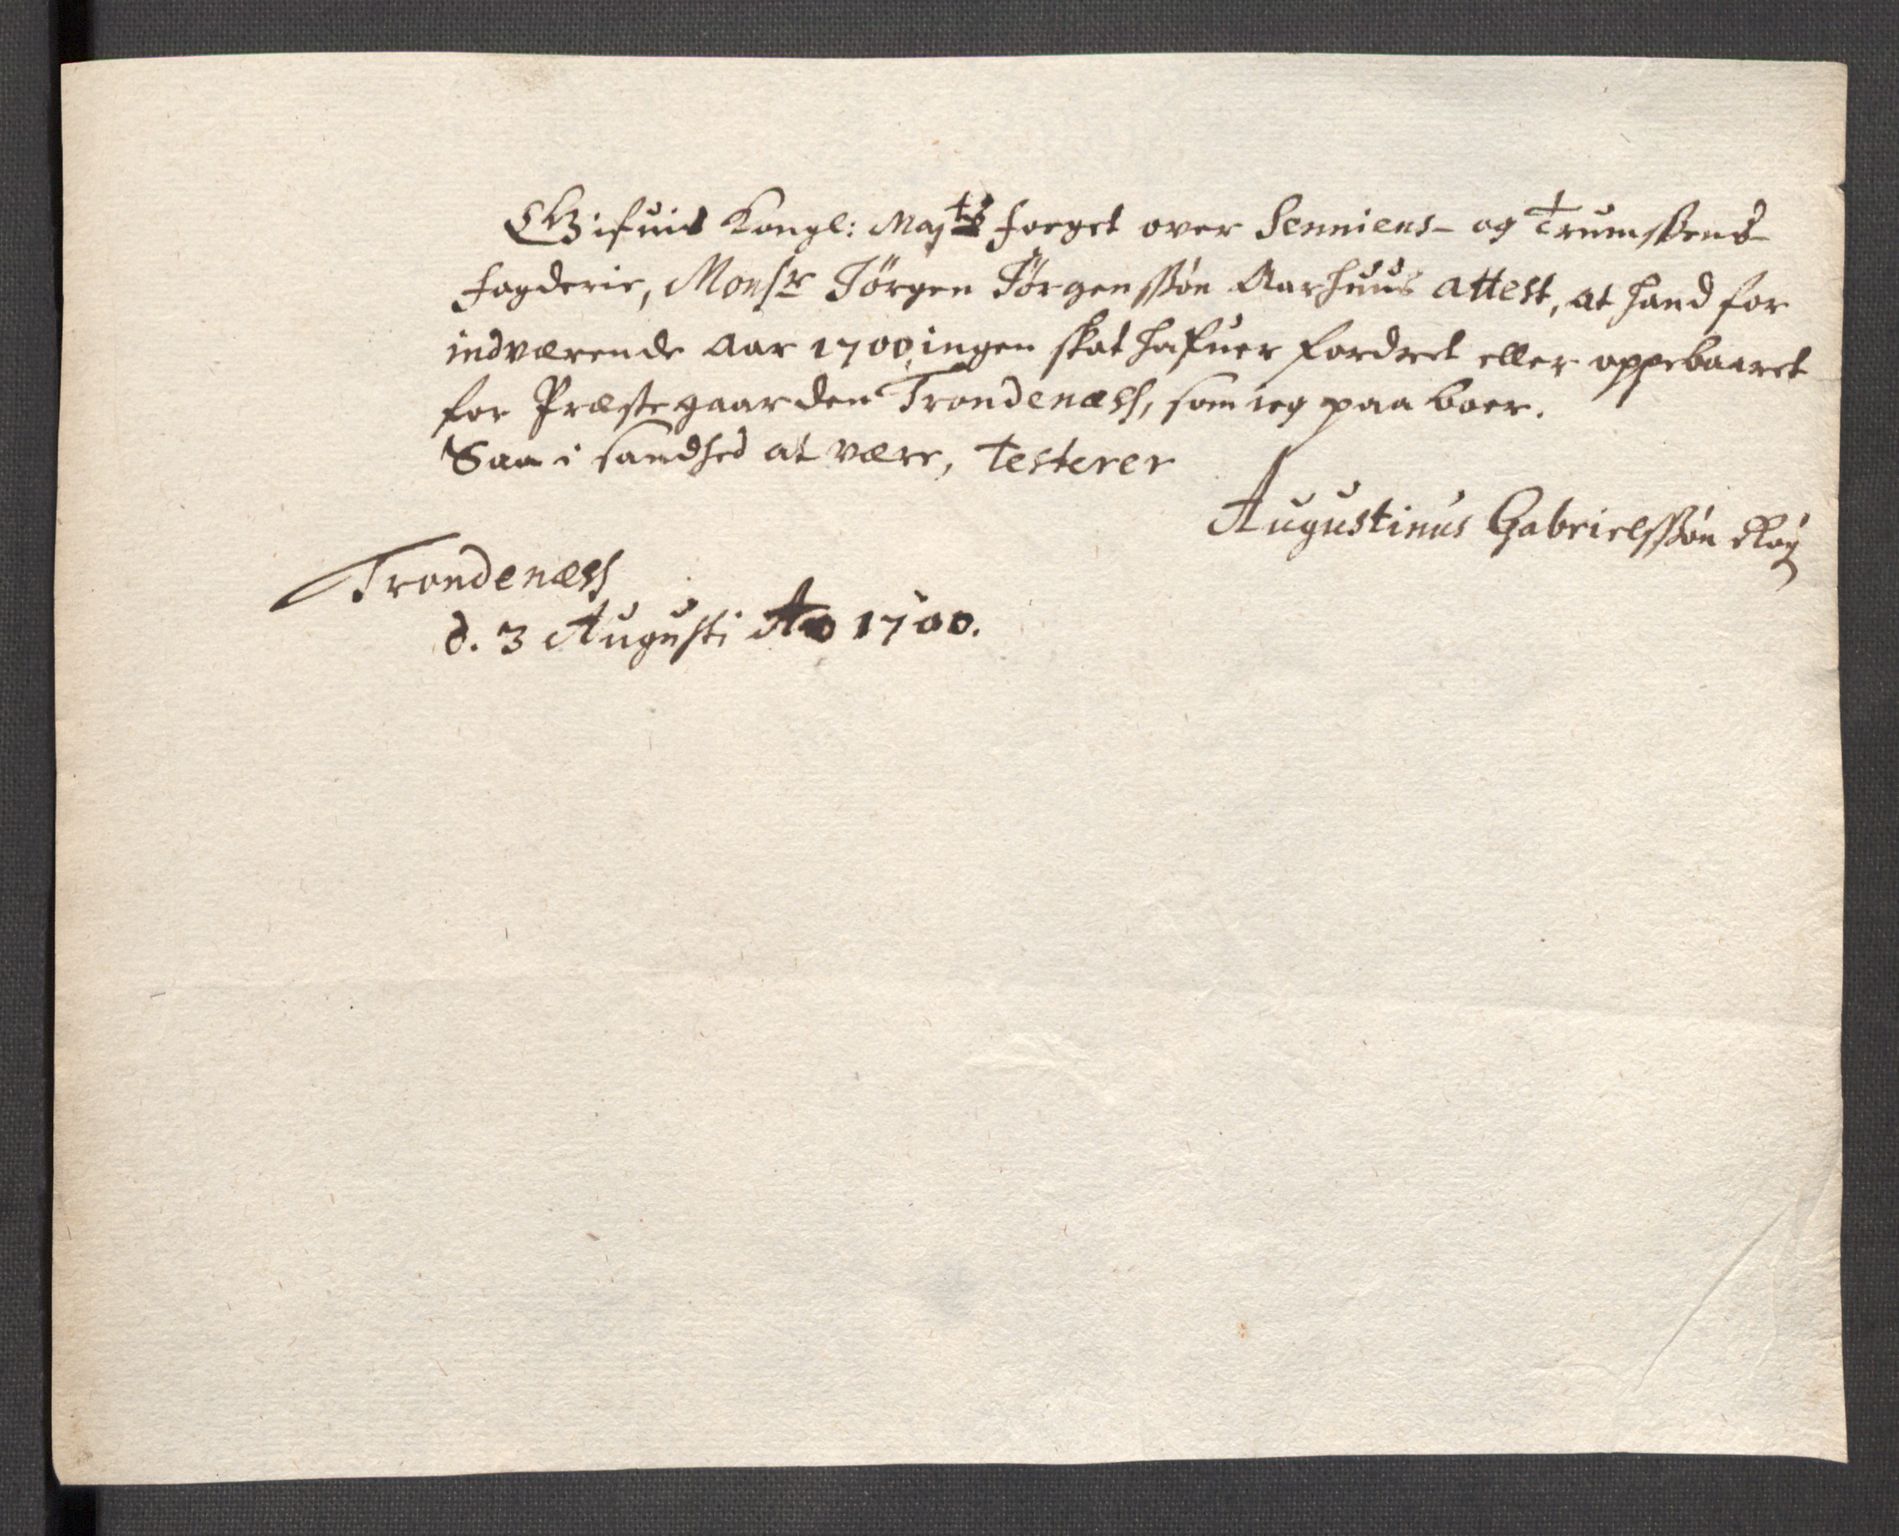 Gifuis Kongl: Majts foeget over Senniens- og Trumssens-
fogderie, Monsr Jörgen Jörgenssön Aarhuus attest, at hand for
indværende Aar 1700, ingen skat hafuer fordret eller oppebaaret
for Præstegaarden Trondenæss, som ieg paa boer.
Saa i sandhed at være, testerer
Augustinus Gabrielssön Röÿ
Trondenæss
d. 3 Augusti Ao 1700.